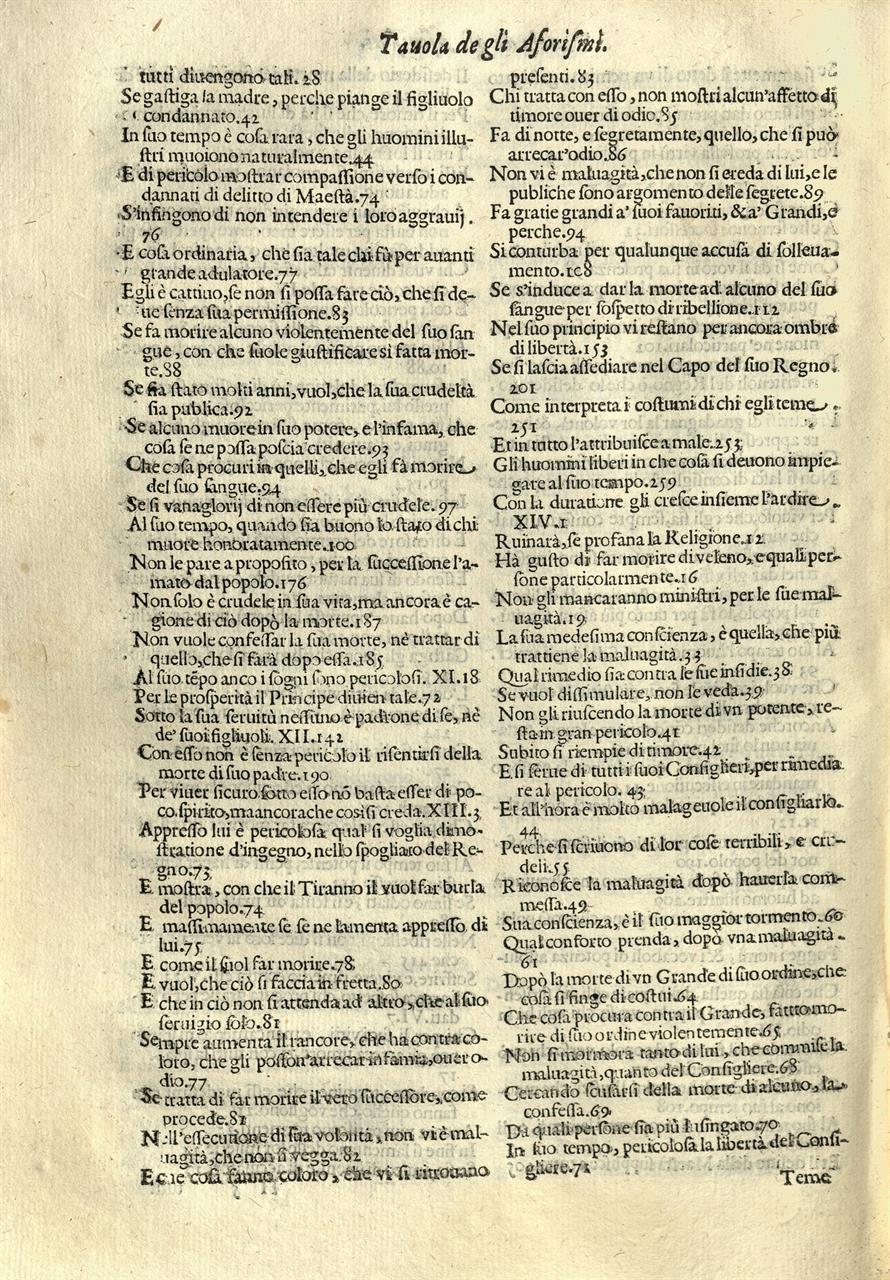 Tauola de gli Aforismi.
tutti diuengono tali. 28
Se gastiga la madre, perche piange il figliuolo
condannato. 42
In suo tempo è cosa rara, che gli huomini illu-
stri muoiono naturalmente. 44
E di pericolo mostrar compassione verso i con-
dannati di delitto di Maestà. 74
S'infingono di non intendere i loro aggrauij.
76
E cosa ordinaria, che sia tale chi fù per auanti
grande adulatore. 77
Egli è cattiuo, se non si possa fare ciò, che si de-
ue senza sua permissione. 83
Se fa morire alcuno violentemente del suo san
gue, con che suole giustificare si fatta mor-
te. 88
Se sia stato molti anni, vuol, che la sua crudeltà
sia publica. 92
Se alcuno muore in suo potere, e l'infama, che
cosa se ne possa poscia credere. 93
Che cosa procuri in quelli, che egli fà morire
del suo sangue. 94
Se si vanaglorij di non essere più crudele. 97
Al suo tempo, quando sia buono lo stato di chi
muore honoratamente. 100
Non le pare a proposito, per la successione l'a-
mato dal popolo. 176
Non solo è crudele in sua vita, ma ancora è ca-
gione di ciò dopò la morte. 187
Non vuole confessar la sua morte, nè trattar di
quello, che si farà dopo essa. 185
Al suo tẽpo anco i sogni sono pericolosi. XI. 18
Per le prosperità il Principe diuien tale. 72
Sotto la sua seruitù nessuno è padrone di se, nè
de' suoi figliuoli. XII. 142
Con esso non è senza pericolo il risentirsi della
morte di suo padre. 190
Per viuer sicuro sotto esso nõ basta esser di po-
co spirito, ma ancora che così si creda. XIII. 3
Appresso lui è pericolosa qual si voglia dimo-
stratione d'ingegno, nello spogliato del Re-
gno. 73
E mostra, con che il Tiranno il vuol far burla
del popolo. 74
E massimamente se se ne lamenta appresso di
lui. 75
E come il suol far morire. 78
E vuol, che ciò si faccia in fretta. 80
E che in ciò non si attenda ad altro, che al suo
seruigio solo. 81
Sempre aumenta il rancore, che ha contra co-
loro, che gli posson'arrecar infamia, ouer o-
dio. 77
Se tratta di far morire il vero successore, come
procede. 81
Nell'essecutione di sua volontà, non vi è mal-
uagità, che non si vegga. 82
E che cosa fanno coloro, che vi si ritrouano
presenti. 83
Chi tratta con esso, non mostri alcun'affetto di
timore ouer di odio. 85
Fa di notte, e segretamente, quello, che si può
arrecar'odio. 86
Non vi è maluagità, che non si creda di lui, e le
publiche sono argomento delle segrete. 89
Fa gratie grandi a' suoi fauoriti, & a' Grandi, e
perche. 94
Si conturba per qualunque accusa di solleua-
mento. 108
Se s'induce a dar la morte ad alcuno del suo
sangue per sospetto di ribellione. 112
Nel suo principio vi restano per ancora ombre
di libertà. 153
Se si lascia assediare nel Capo del suo Regno.
201
Come interpreta i costumi di chi egli teme.
251
Et in tutto l'attribuisce a male. 253
Gli huomini liberi in che cosa si deuono impie-
gare al suo tempo. 259
Con la duratione gli cresce insieme l'ardire.
XIV. 1
Ruinarà, se profana la Religione. 12
Hà gusto di far morire di veleno, e quali per-
sone particolarmente. 16
Non gli mancaranno ministri, per le sue mal-
uagità. 19
La sua medesima conscienza, è quella, che più
trattiene la maluagità. 33
Qual rimedio sia contra le sue insidie. 38
Se vuol dissimulare, non le veda. 39
Non gli riuscendo la morte di vn potente, re-
sta in gran pericolo. 41
Subito si riempie di timore. 42
E si serue di tutti i suoi Consiglieri, per rimedia
re al pericolo. 43
Et all'hora è molto malageuole il consigliarlo.
44
Perche si scriuono di lor cose terribili, e cru-
deli. 55
Riconosce la maluagità dopò hauerla com-
messa. 49
Sua conscienza, è il suo maggior tormento. 60
Qual conforto prenda, dopò vna maluagità.
61
Dopò la morte di vn Grande di suo ordine, che
cosa si finge di costui. 64
Che cosa procura contra il Grande, fatto mo-
rire di suo ordine violentemente. 65
Non si mormora tanto di lui, che commise la
maluagità, quanto del Consigliere. 68
Cercando scusarsi della morte di alcuno, la
confessa. 69
Da quali persone sia più lusingato. 70
In suo tempo, pericolosa la libertà del Consi-
gliere. 71
Teme